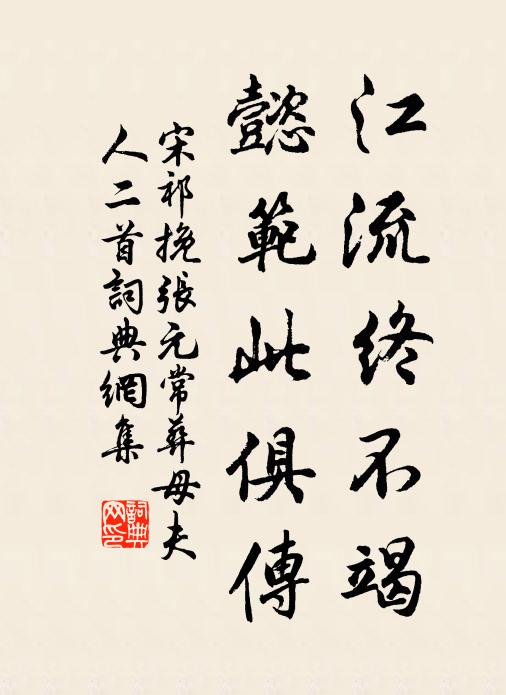 江流终不竭
懿範此俱傳
宋祁挽張元常葬母夫
人二首詞典網集
詞典
网印